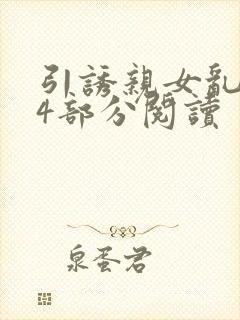 引誘親女亂
4部分閱讀
泉蛋君